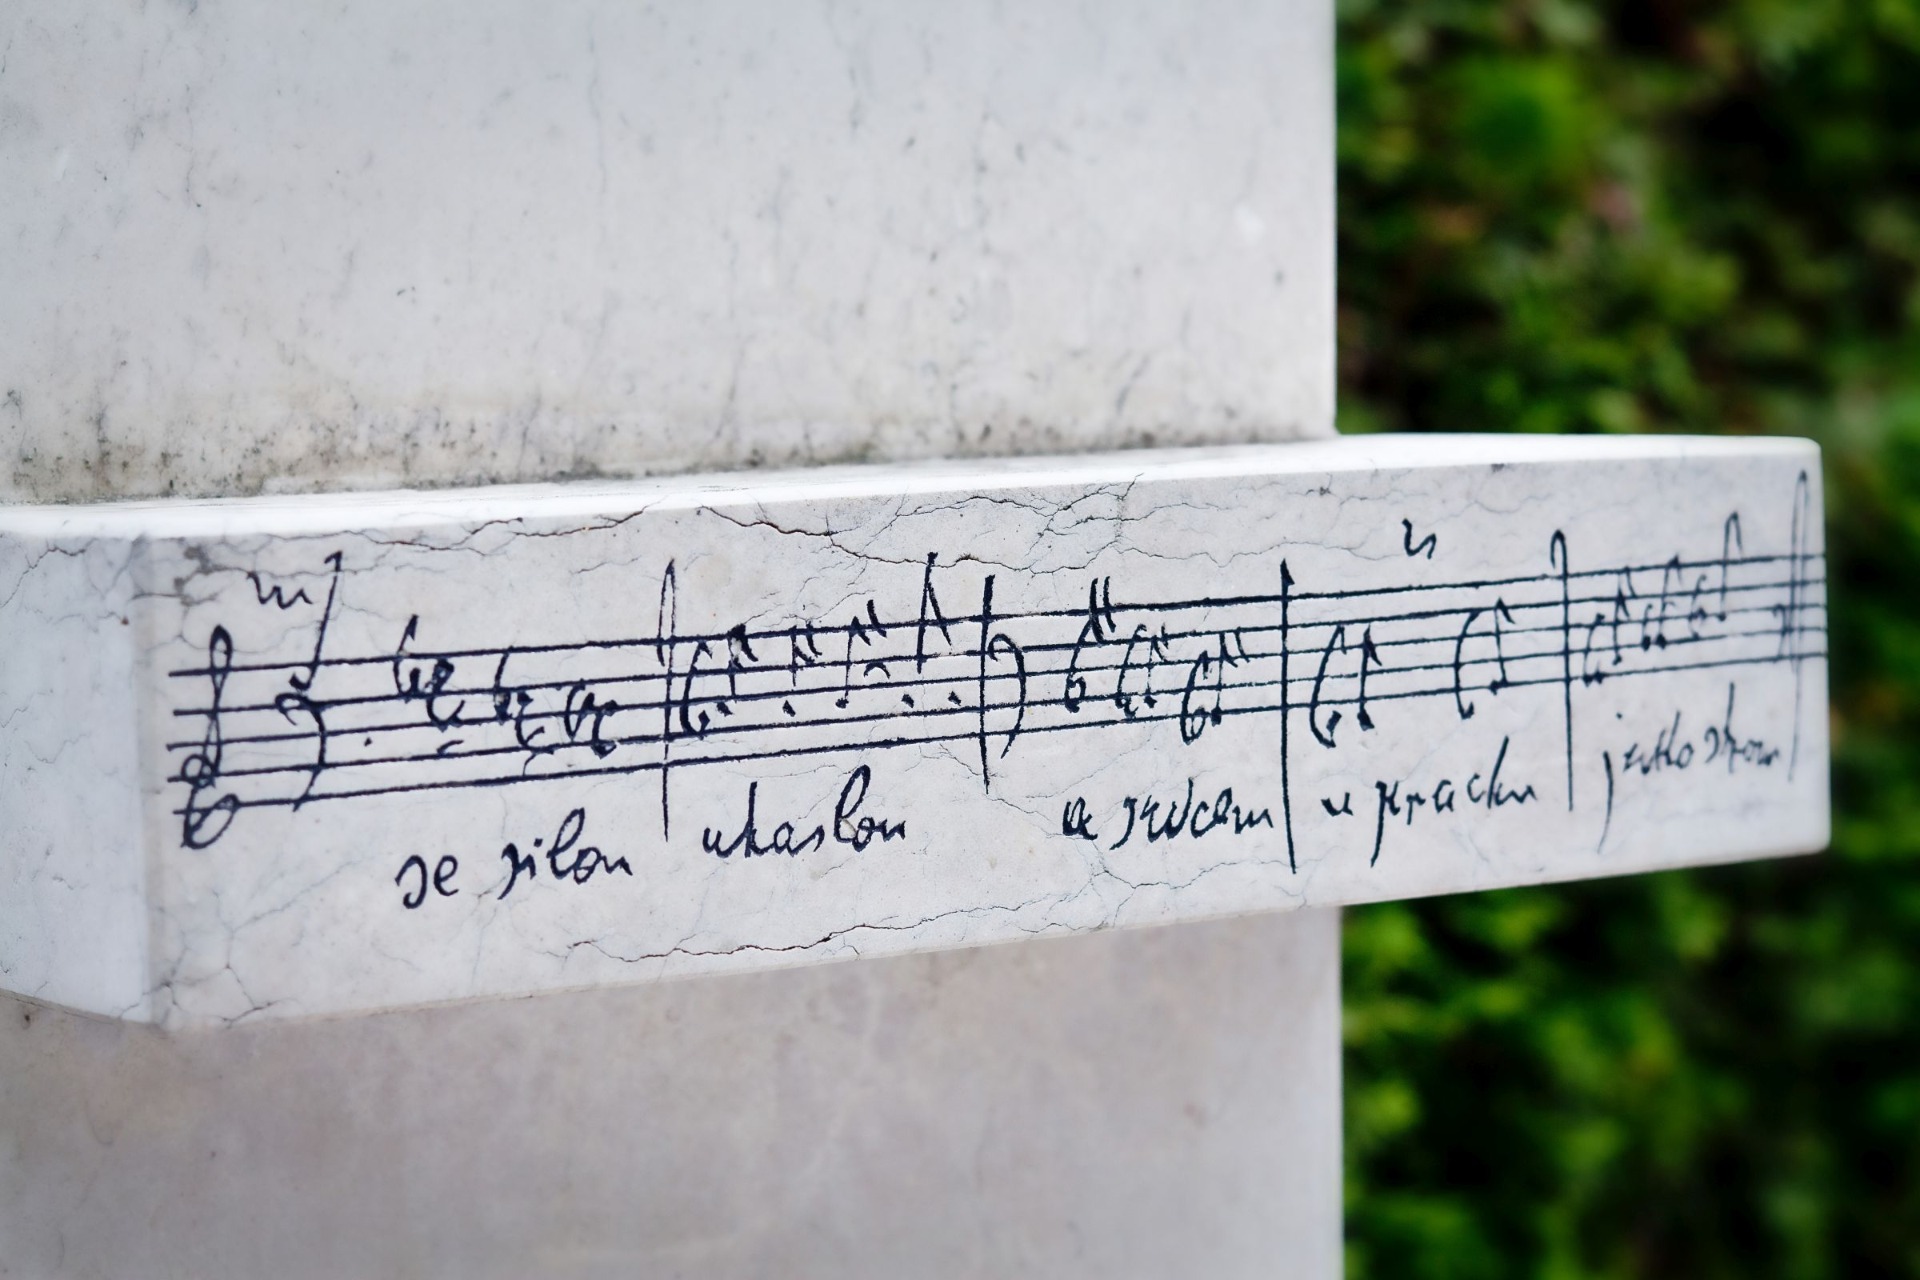 se silou uhaslou a srdcem v prachu jako strom